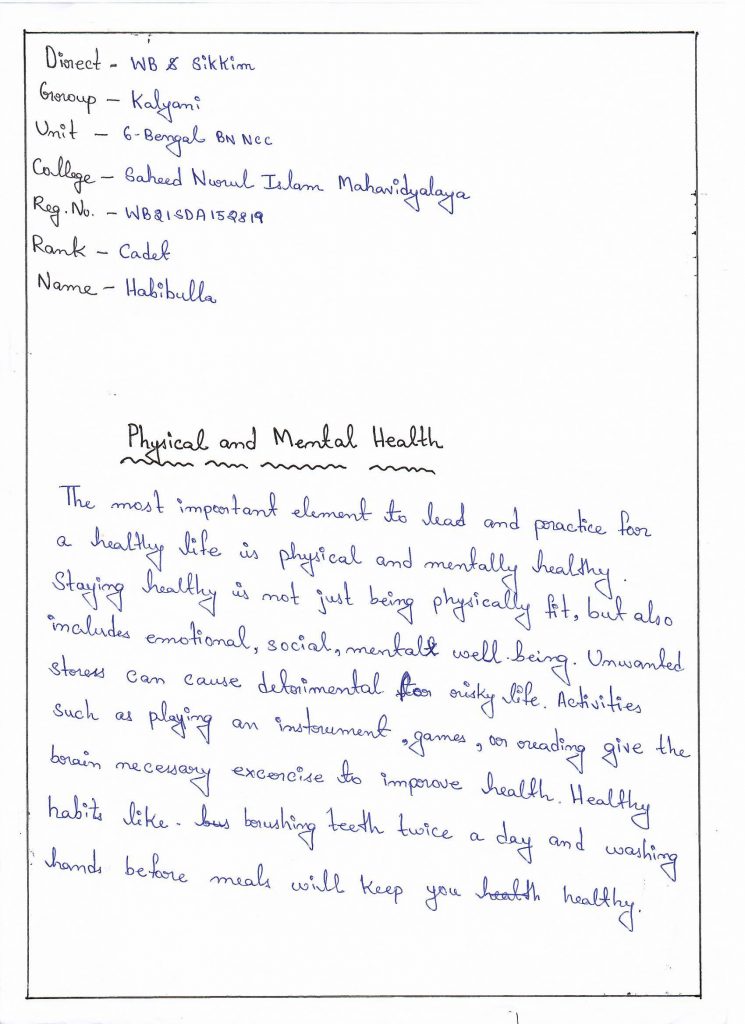 Direct - WB & Sikkim
Group - Kalyani
Unit - 6-Bengal BN NCC
College - Saheed Nurul Islam Mahavidyalaya
Reg. No. - WB21SDA152819
Rank - Cadet
Name - Habibulla
Physical and Mental Health
The most important element to lead and practice for
a healthy life is physical and mentally healthy.
Staying healthy is not just being physically fit, but also
includes emotional, social, mental well-being. Unwanted
stress can cause detrimental for risky life. Activities
such as playing an instrument, games, or reading give the
brain necessary excercise to improve health. Healthy
habits like. bus brushing teeth twice a day and washing
hands before meals will keep you health healthy.